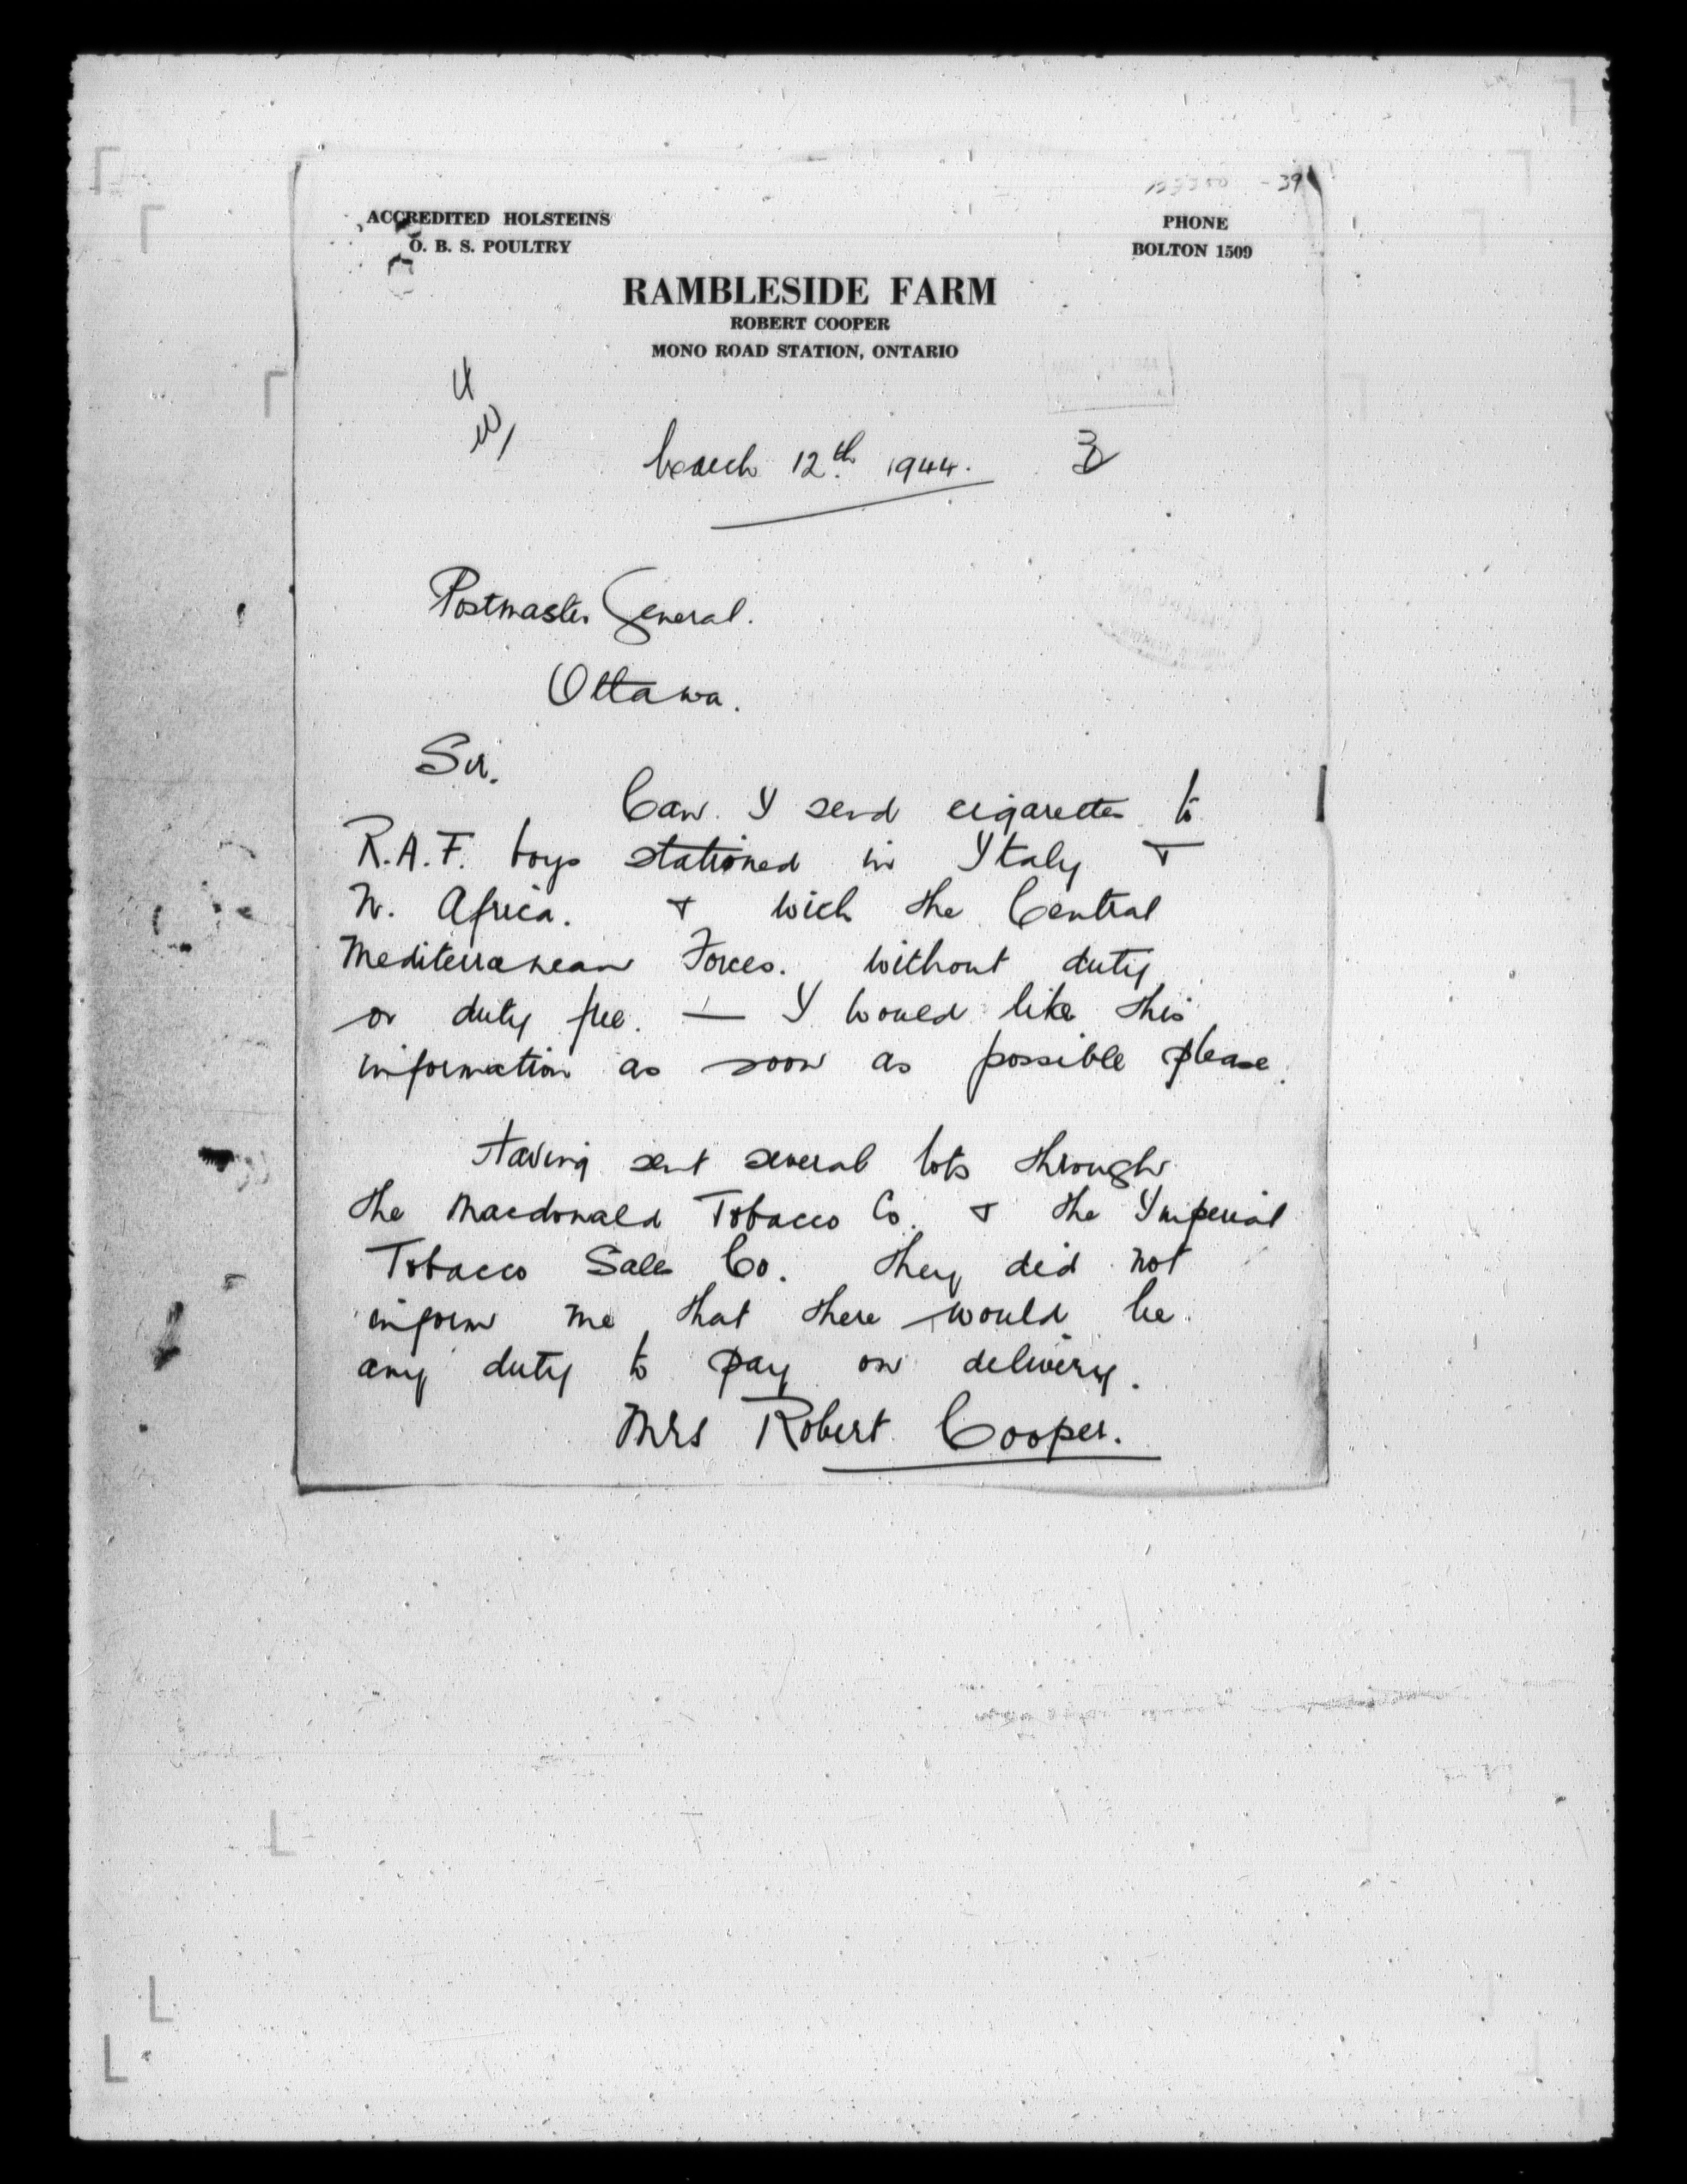 - 39
ACCREDITED HOLSTEINS
O. B. S. POULTRY
PHONE
BOLTON 1509
RAMBLESIDE FARM
ROBERT COOPER
MONO ROAD STATION, ONTARIO
March 12th 1944.
Postmaster General.
Ottawa.
Sir.
Can I send cigarettes to
R.A.F. boys stationed in Italy &
N. Africa. & with the Central
Mediterranean Forces. without duty
or duty free. — I would like this
information as soon as possible please.
Having sent several lots through
the Macdonald Tobacco Co. & the Imperial
Tobacco Sales Co. they did not
inform me that there would be
any duty to pay on delivery.
Mrs Robert Cooper.